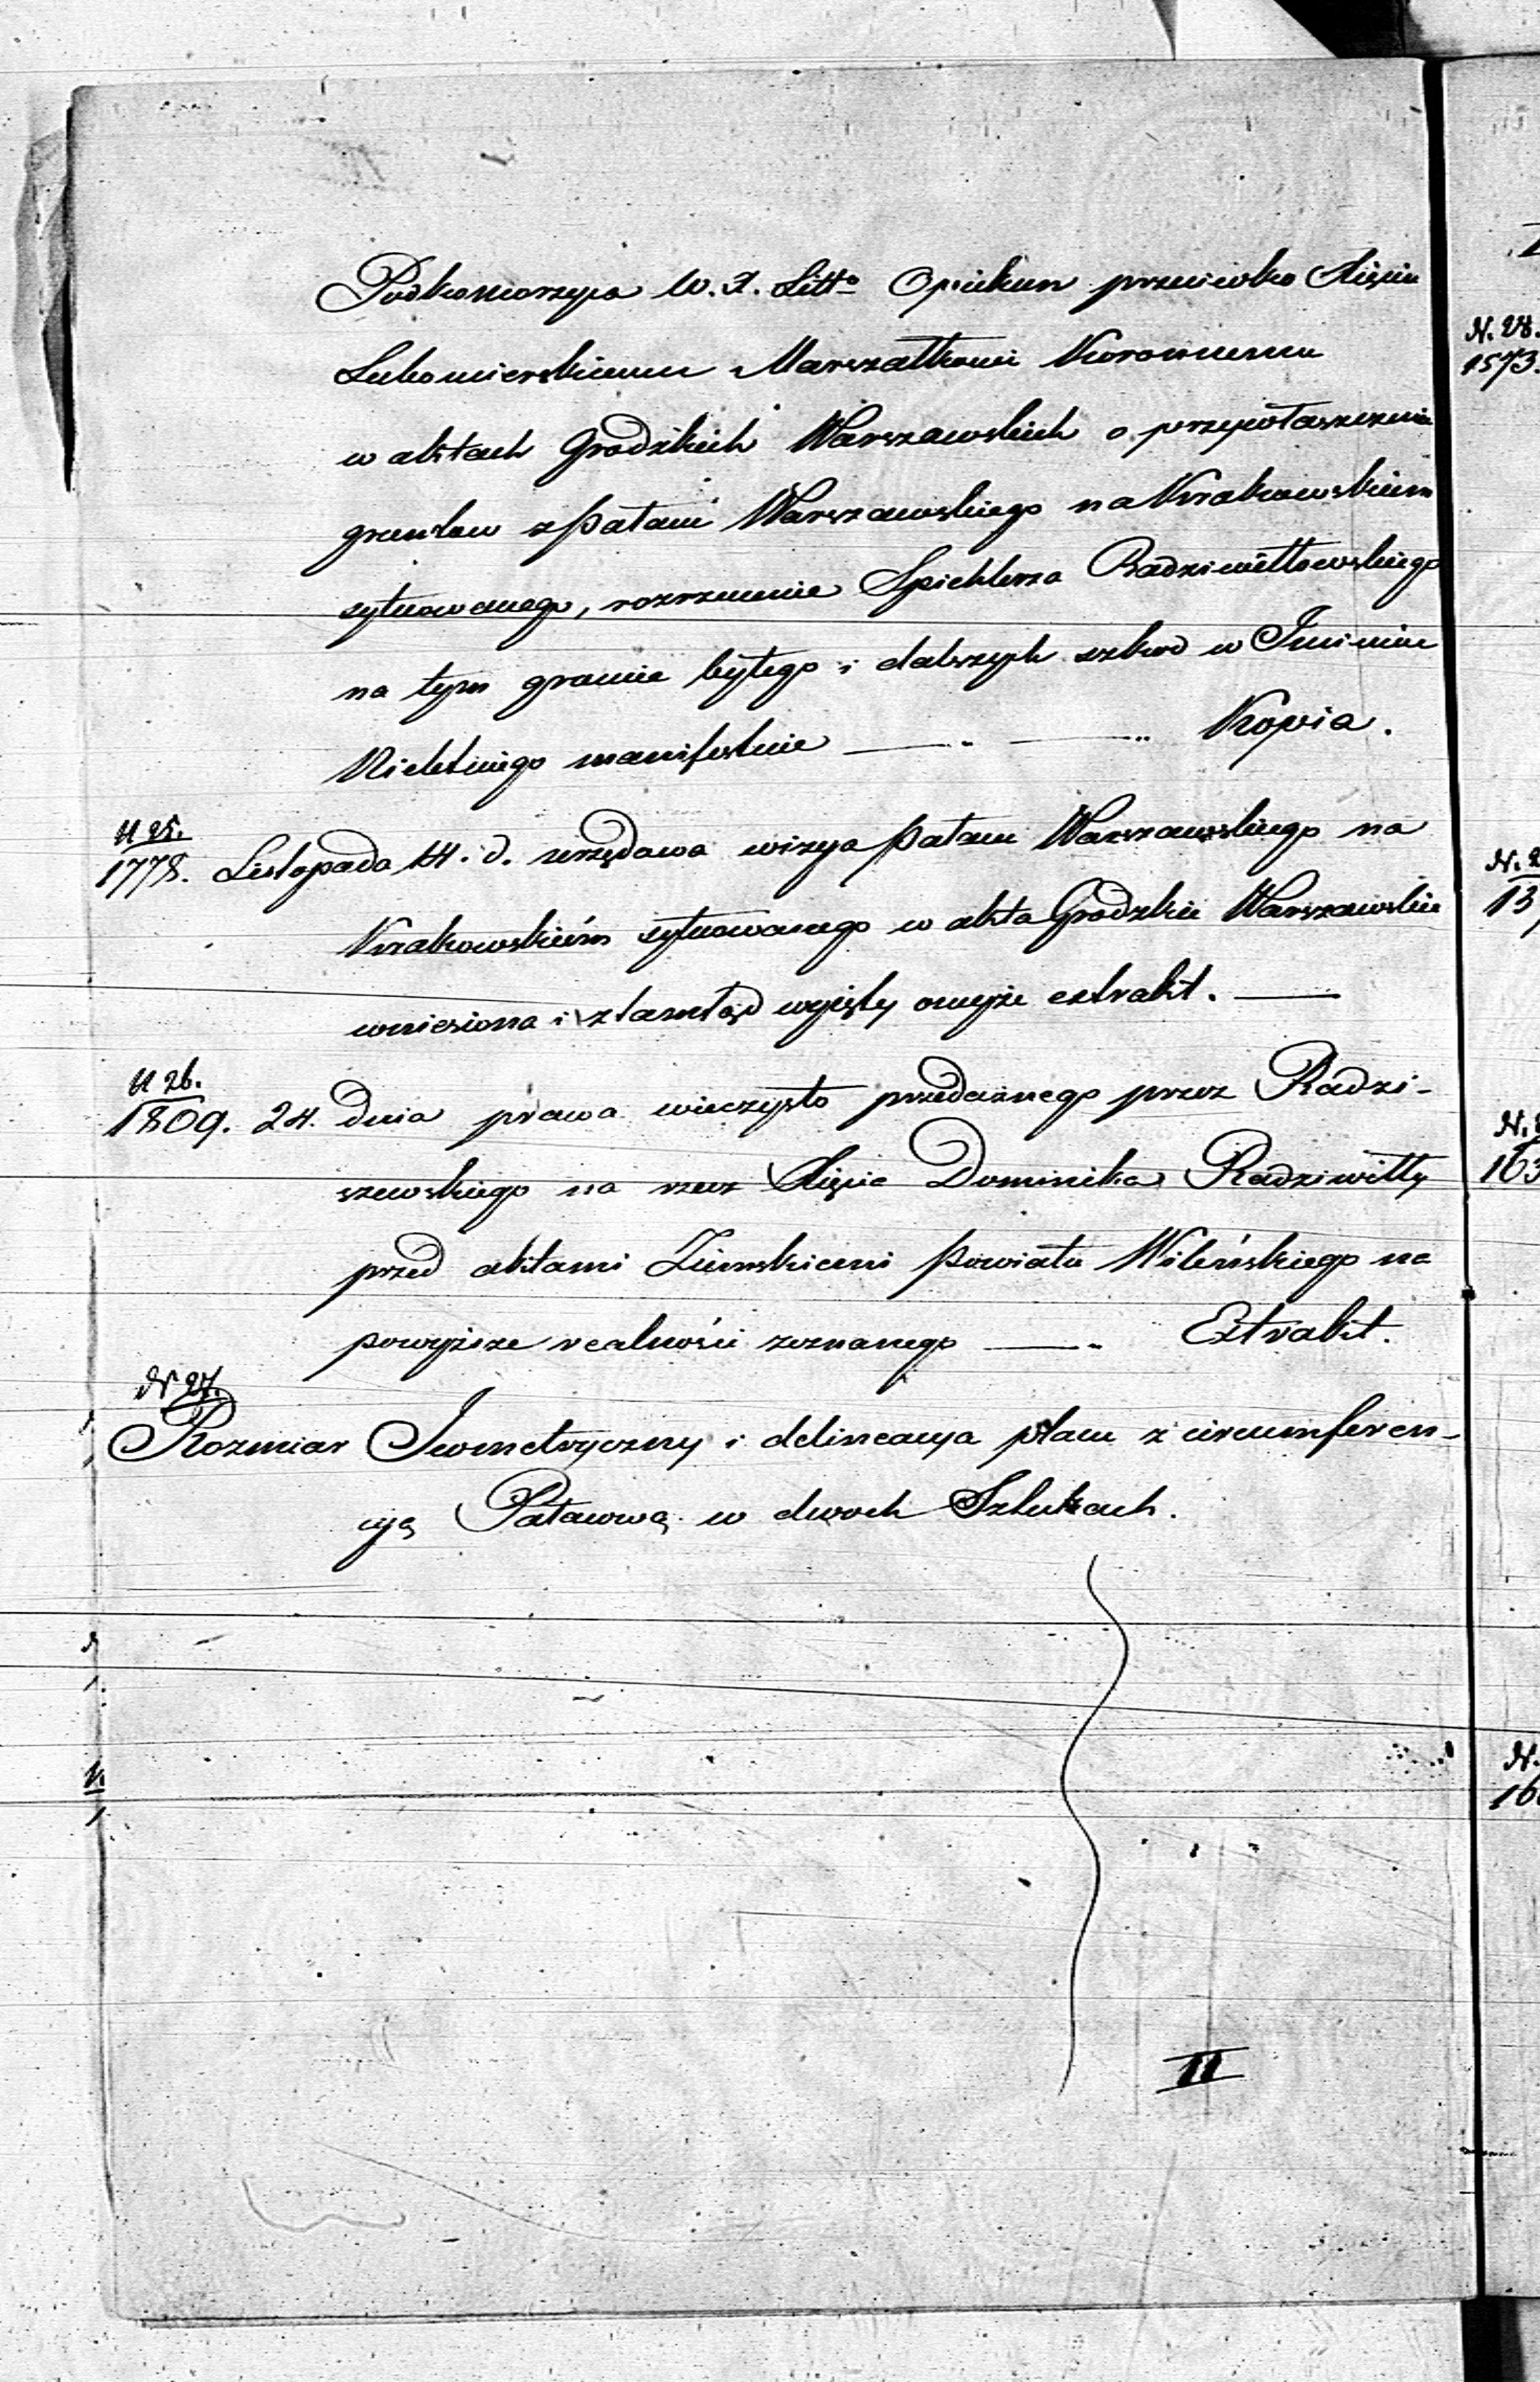 Podkomorzyca W. X. Litt° Opiekun przeciwko Xięciu
Lubomierskiemu Marszałkowi Koronnemu
w aktach Grodzkich Warszawskich o przywłaszczenie
gruntow z Pałacu Warszawskiego na Krakowskiem
sytuowanego, rozrzucenie Spichlerza Radziwiłłowskiego
na tym gruncie byłego i dalszych szkod w Imieniu
Nieletniego manifestuie Kopia.
N 25.
1778. Listopada 14. d. urzędowa wizya Pałacu Warszawskiego na
Krakowskiém sytuowanego w akta Grodzkie Warszawskie
wniesiona i ztamtąd wyięty oneyże extrakt.
N 26.
1809. 24. Dnia prawa wieczysto przedażnego przez Radzi-
szewskiego na rzecz Xięcia Dominika Radziwiłły
przed aktami Ziemskiemi Powiatu Wileńskiego na
powyższe realności zeznanego Extrakt.
N 27.
Rozmiar Jeometryczny i delineacya placu z circumferen-
cyą Pałacową w dwoch Sztukach.
II
N. 28.
1573.